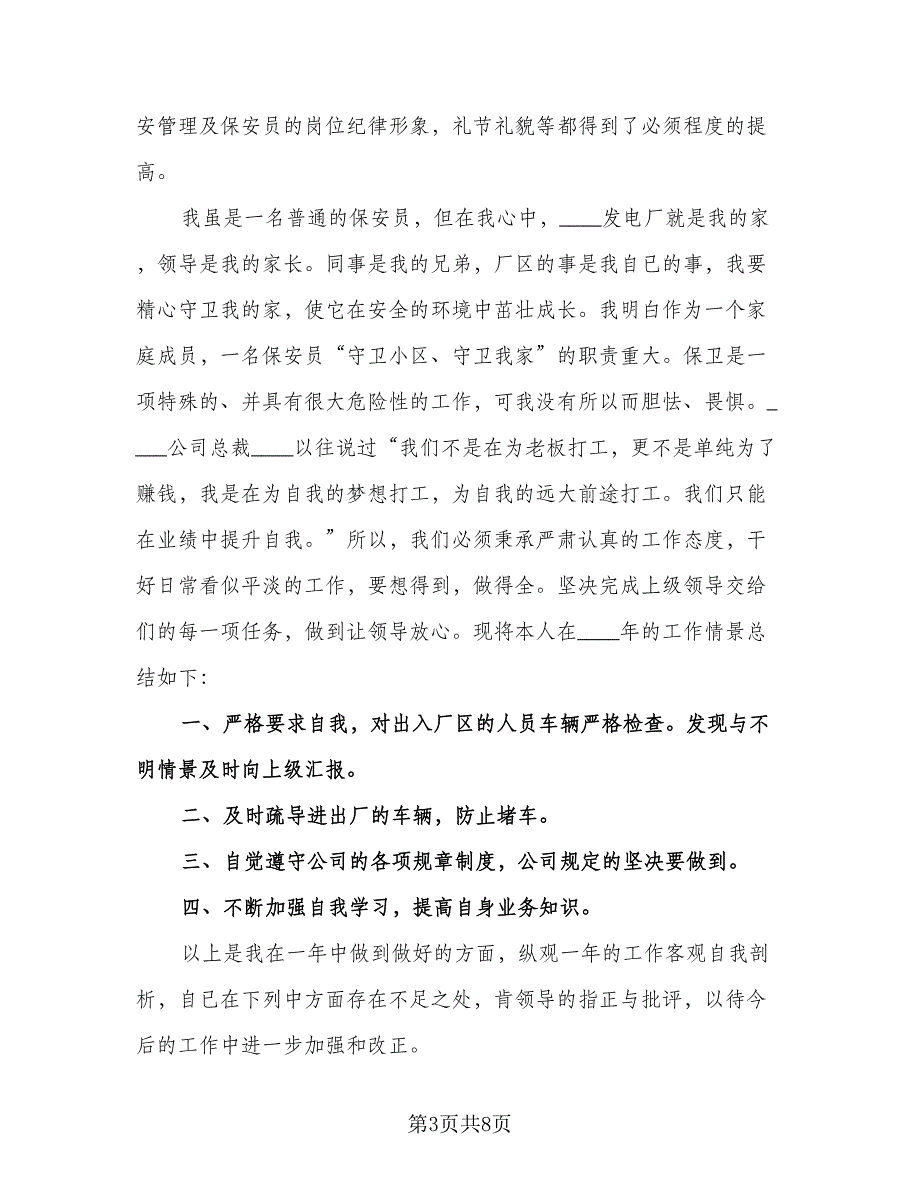 安管理及保安员的岗位纪律形象，礼节礼貌等都得到了必须程度的提
高。
我虽是一名普通的保安员，但在我心中，____发电厂就是我的家
，领导是我的家长。同事是我的兄弟，厂区的事是我自已的事，我要
精心守卫我的家，使它在安全的环境中茁壮成长。我明白作为一个家
庭成员，一名保安员“守卫小区、守卫我家”的职责重大。保卫是一
项特殊的、并具有很大危险性的工作，可我没有所以而胆怯、畏惧。_
___公司总裁____以往说过“我们不是在为老板打工，更不是单纯为了
赚钱，我是在为自我的梦想打工，为自我的远大前途打工。我们只能
在业绩中提升自我。”所以，我们必须秉承严肃认真的工作态度，干
好日常看似平淡的工作，要想得到，做得全。坚决完成上级领导交给
们的每一项任务，做到让领导放心。现将本人在____年的工作情景总
结如下：
一、严格要求自我，对出入厂区的人员车辆严格检查。发现与不
明情景及时向上级汇报。
二、及时疏导进出厂的车辆，防止堵车。
三、自觉遵守公司的各项规章制度，公司规定的坚决要做到。
四、不断加强自我学习，提高自身业务知识。
以上是我在一年中做到做好的方面，纵观一年的工作客观自我剖
析，自已在下列中方面存在不足之处，肯领导的指正与批评，以待今
后的工作中进一步加强和改正。
第3页共8页